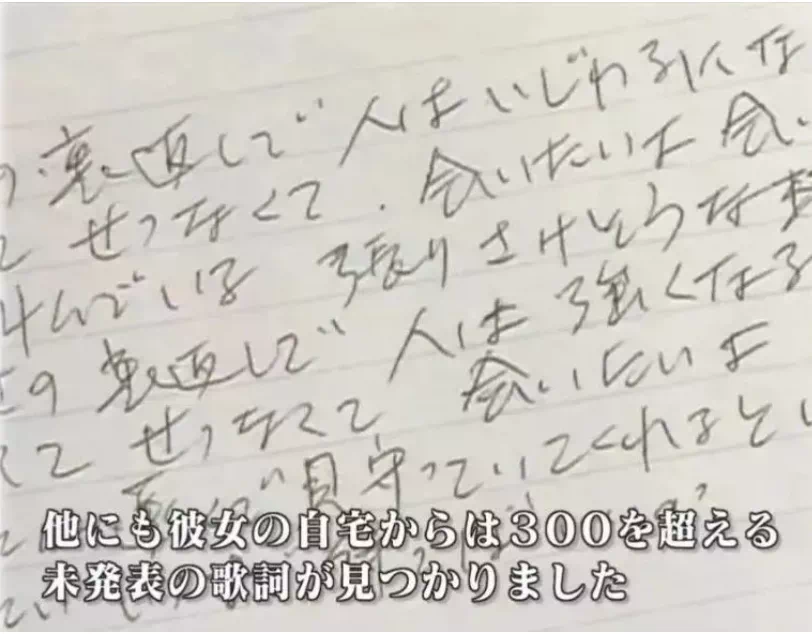 の裏返しで 人はいじわるにな
て せつなくて 会いたいよ 会い
んでいる 張りさけそうな
の裏返しで 人は強くなる
くて せつなくて 会いたいよ
で見守っていてくれるとい
他にも彼女の自宅からは300を超える
未発表の歌詞が見つかりました